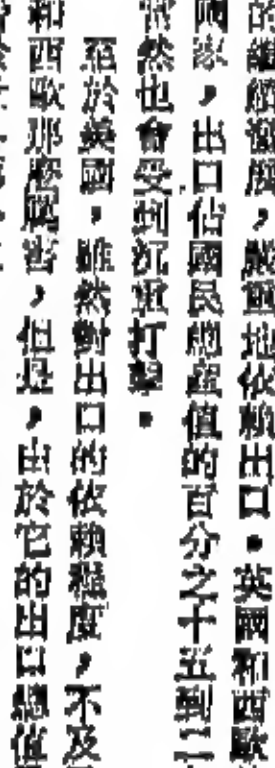 的繼續發展，嚴重地依賴出口。英國和西歐
國家，出口佔國民總產值的百分之十五到二
當然也會受到沉重打擊。
至於美國，雖然對出口的依賴程度，不及
和西歐那麼厲害，但是，由於它的出口總值